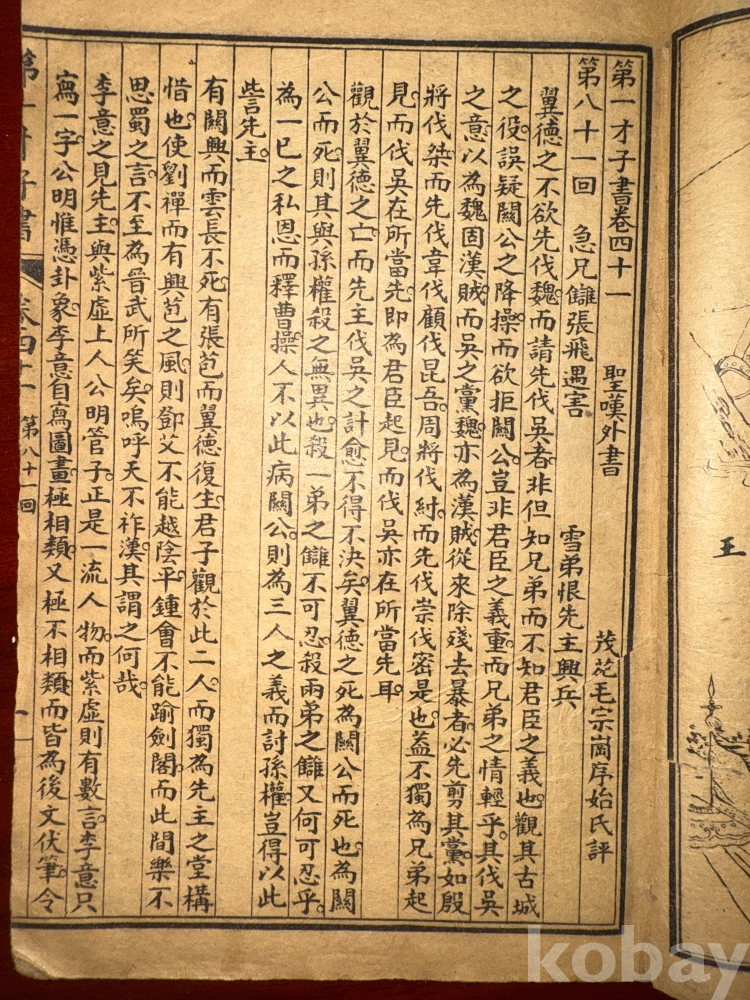 第一才子書卷四十一
聖嘆外書
茂苑毛宗崗序始氏評
第八十一回　急兄讎張飛遇害　雪弟恨先主興兵
翼德之不欲先伐魏而請先伐吳者非但知兄弟而不知君臣之義也觀其古城
之役誤疑關公之降操而欲拒關公豈非君臣之義重而兄弟之情輕乎其伐吳
之意以為魏固漢賊而吳之黨魏亦為漢賊從來除殘去暴者必先剪其黨如殷
將伐桀而先伐韋伐顧伐昆吾周將伐紂而先伐崇伐密是也蓋不獨為兄弟起
見而伐吳在所當先即為君臣起見而伐吳亦在所當先耳
觀於翼德之亡而先主伐吳之計愈不得不決矣翼德之死為關公而死也為關
公而死則其與孫權殺之無異也殺一弟之讎不可忍殺兩弟之讎又何可忍乎
為一已之私恩而釋曹操人不以此病關公則為三人之義而討孫權豈得以此
訾先主
有關興而雲長不死有張苞而翼德復生君子觀於此二人而獨為先主之堂構
惜也使劉禪而有興苞之風則鄧艾不能越陰平鍾會不能踰劍閣而此間樂不
思蜀之言不至為晉武所笑矣嗚呼天不祚漢其謂之何哉
李意之見先主與紫虛上人公明管子正是一流人物而紫虛則有數言李意只
寫一字公明惟憑卦象李意自寫圖畫極相類又極不相類而皆為後文伏筆令
第一才子書
卷四十一
第八十一回
一
五
kobay